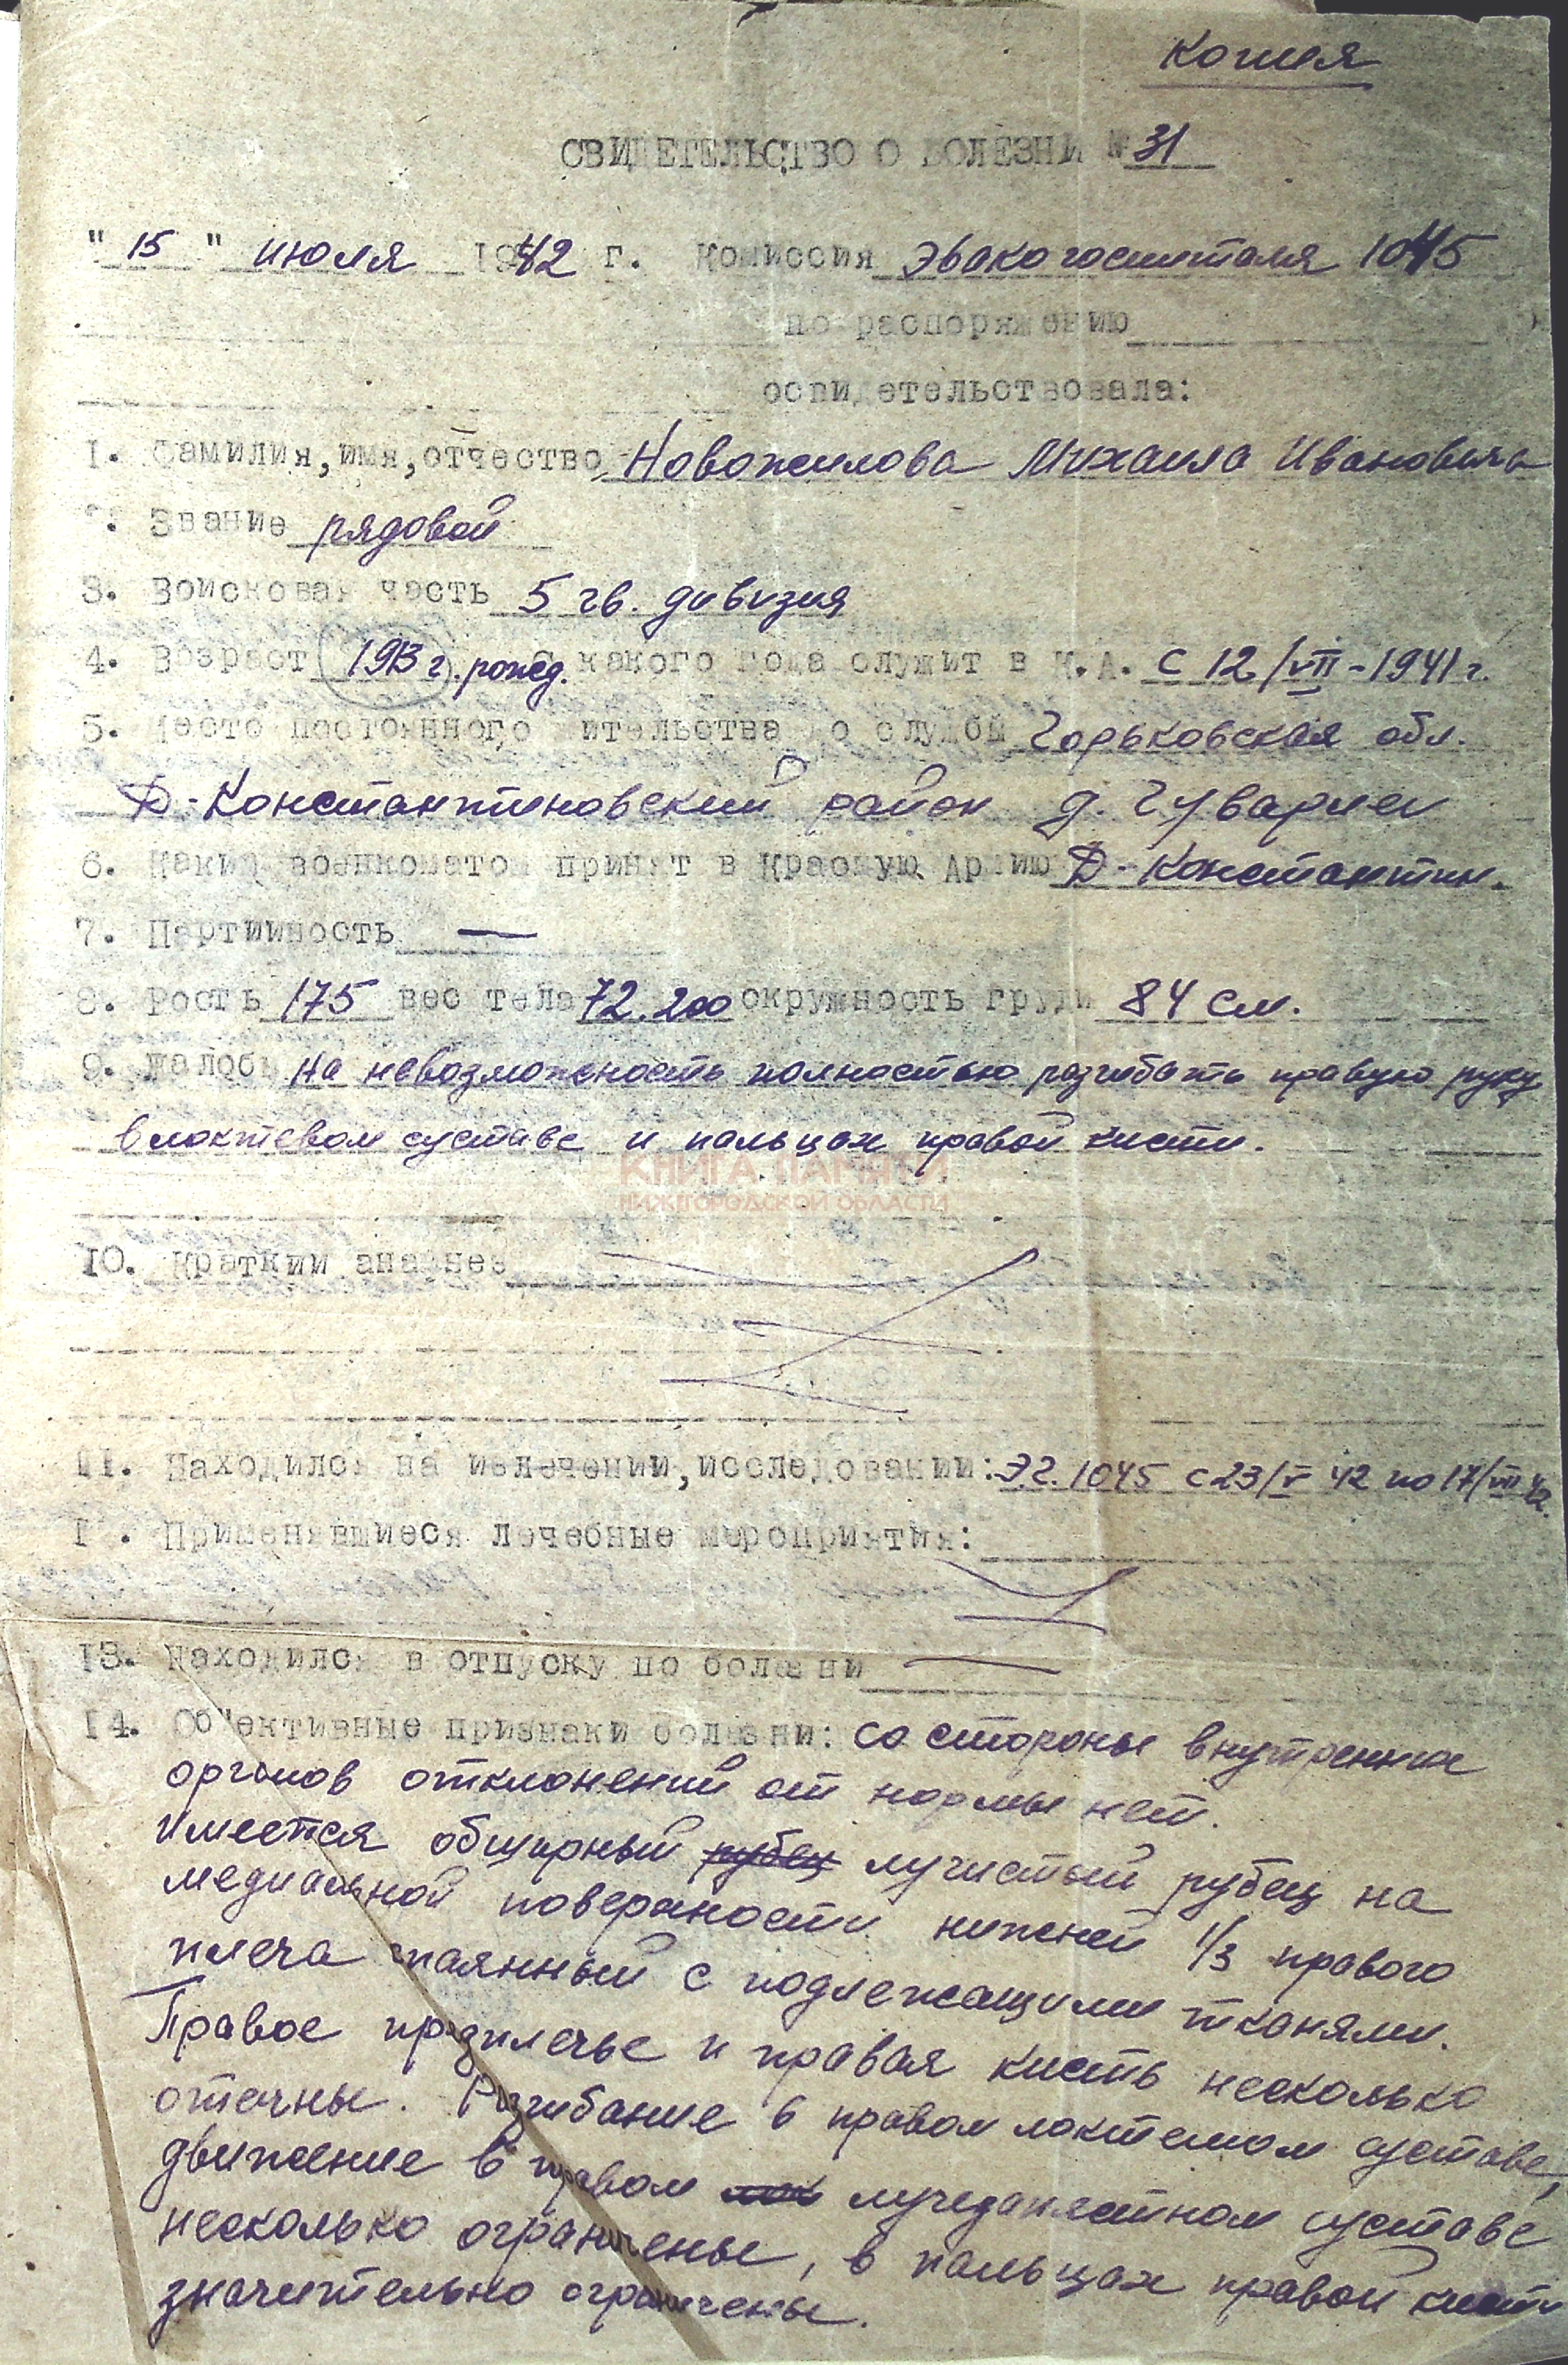 Копия
СВИДЕТЕЛЬСТВО О БОЛЕЗНИ № 31
" 15 " июля 1942 г. Комиссия Эвакогоспиталя 1045
по распоряжению
освидетельствовала:
1. Фамилия, имя, отчество Новожилова Михаила Ивановича
2. Звание рядовой
3. Войсковая часть 5 гв. дивизия
4. Возраст 1913 г. рожд. С какого года служит в К.А. с 12/VII-1941 г.
5. Место постоянного жительства до службы Горьковская обл.
Д-Константиновский район д. Гуварлеи
6. Каким военкоматом принят в Красную Армию Д-Константин.
7. Партийность —
8. Рост ь 175 вес тела 72.200 окружность груди 84 см.
9. Жалобы На невозможность полностью разгибать правую руку
в локтевом суставе и пальцах правой кисти.
КНИГА ПАМЯТИ
НИЖЕГОРОДСКОЙ ОБЛАСТИ
10. Краткий анамнез
11. Находился на излечении, исследовании: Э.Г. 1045 с 23/V 42 по 17/VII 42.
12. Применявшиеся лечебные мероприятия:
13. Находился в отпуску по болезни —
14. Об"ективные признаки болезни: со стороны внутренних
органов отклонений от нормы нет.
Имеется обширный рубец лучистый рубец на
медиальной поверхности нижней 1/3 правого
плеча спаянный с подлежащими тканями.
Правое предплечье и правая кисть несколько
отечны. Разгибание в правом локтевом суставе,
движение в правом лучезапястном суставе
несколько ограничены, в пальцах правой кисти
значительно ограничены.